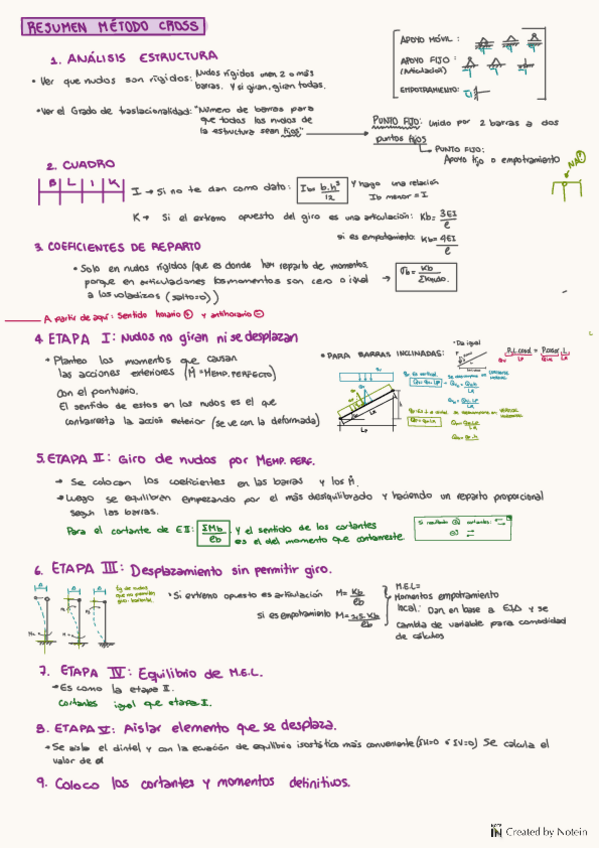 RESUMEN MÉTODO CROSS
APOYO MÓVIL:
APOYO FIJO:
(Articulación)
EMPOTRAMIENTO:
1. ANÁLISIS ESTRUCTURA
• Ver que nudos son rígidos: Nudos rígidos unen 2 o más
barras. Y si giran, giran todas.
• Ver el Grado de traslacionalidad: "Número de barras para
que todos los nudos de
la estructura sean fijos"
PUNTO FIJO: unido por 2 barras a dos
puntos fijos
PUNTO FIJO:
Apoyo fijo o empotramiento
2. CUADRO
B L I K
I → Si no te dan como dato: Ib= b.h³/12 Y hago una relación
Ib menor = I
K → Si el extremo opuesto del giro es una articulación: Kb= 3EI/l
si es empotramiento: Kb= 4EI/l
3. COEFICIENTES DE REPARTO
• Solo en nudos rígidos (que es donde hay reparto de momentos,
porque en articulaciones los momentos son cero o igual
a los voladizos (salto=0))
→ σb= Kb/ΣKnudo.
A partir de aquí: Sentido horario + y antihorario -
4 ETAPA I: Nudos no giran ni se desplazan
• Planteo los momentos que causan
las acciones exteriores (M = MEMP. PERFECTO)
Con el prontuario.
El sentido de estos en los nudos es el que
contrarresta la acción exterior (se ve con la deformada)
• PARA BARRAS INCLINADAS:
• Da igual
5. ETAPA II: Giro de nudos por MEMP. PERF.
→ Se colocan los coeficientes en las barras y los M.
• Luego se equilibran empezando por el más desequilibrado y haciendo un reparto proporcional
según las barras.
Para el cortante de EII: ΣMb/lb y el sentido de los cortantes
es el del momento que contrarreste
6. ETAPA III: Desplazamiento sin permitir giro.
• Si extremo opuesto es articulación M= Kb/lb
si es empotramiento M= 1.5 Kb/lb
M.E.L=
Momentos empotramiento
local: Dan en base a EIΔ y se
cambia de variable para comodidad
de cálculos
7. ETAPA IV: Equilibrio de M.E.L.
• Es como la etapa II.
Cortantes igual que etapa I.
8. ETAPA V: Aislar elemento que se desplaza.
• Se aisla el dintel y con la ecuación de equilibrio isostático más conveniente (ΣH=0 ó ΣV=0) Se calcula el
valor de α
9. Coloco los cortantes y momentos definitivos.
Created by Notein